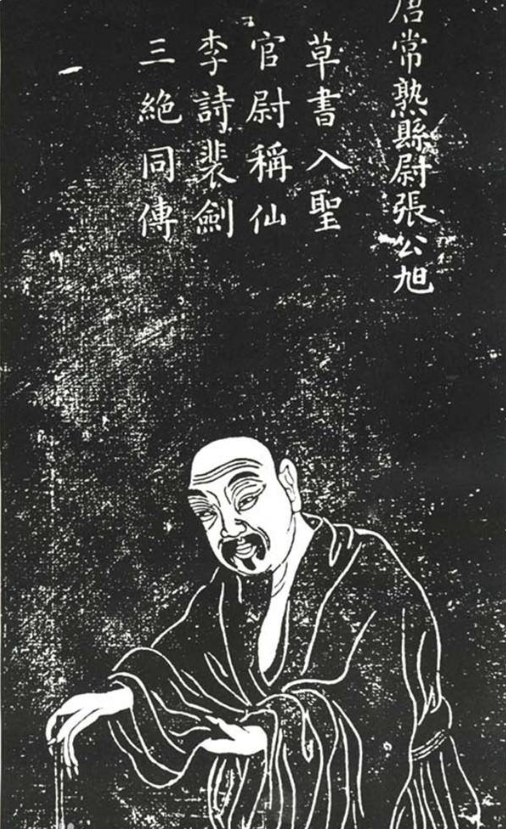 唐常熟縣尉張公旭
草書入聖
官尉稱仙
李詩裴劍
三絕同傳